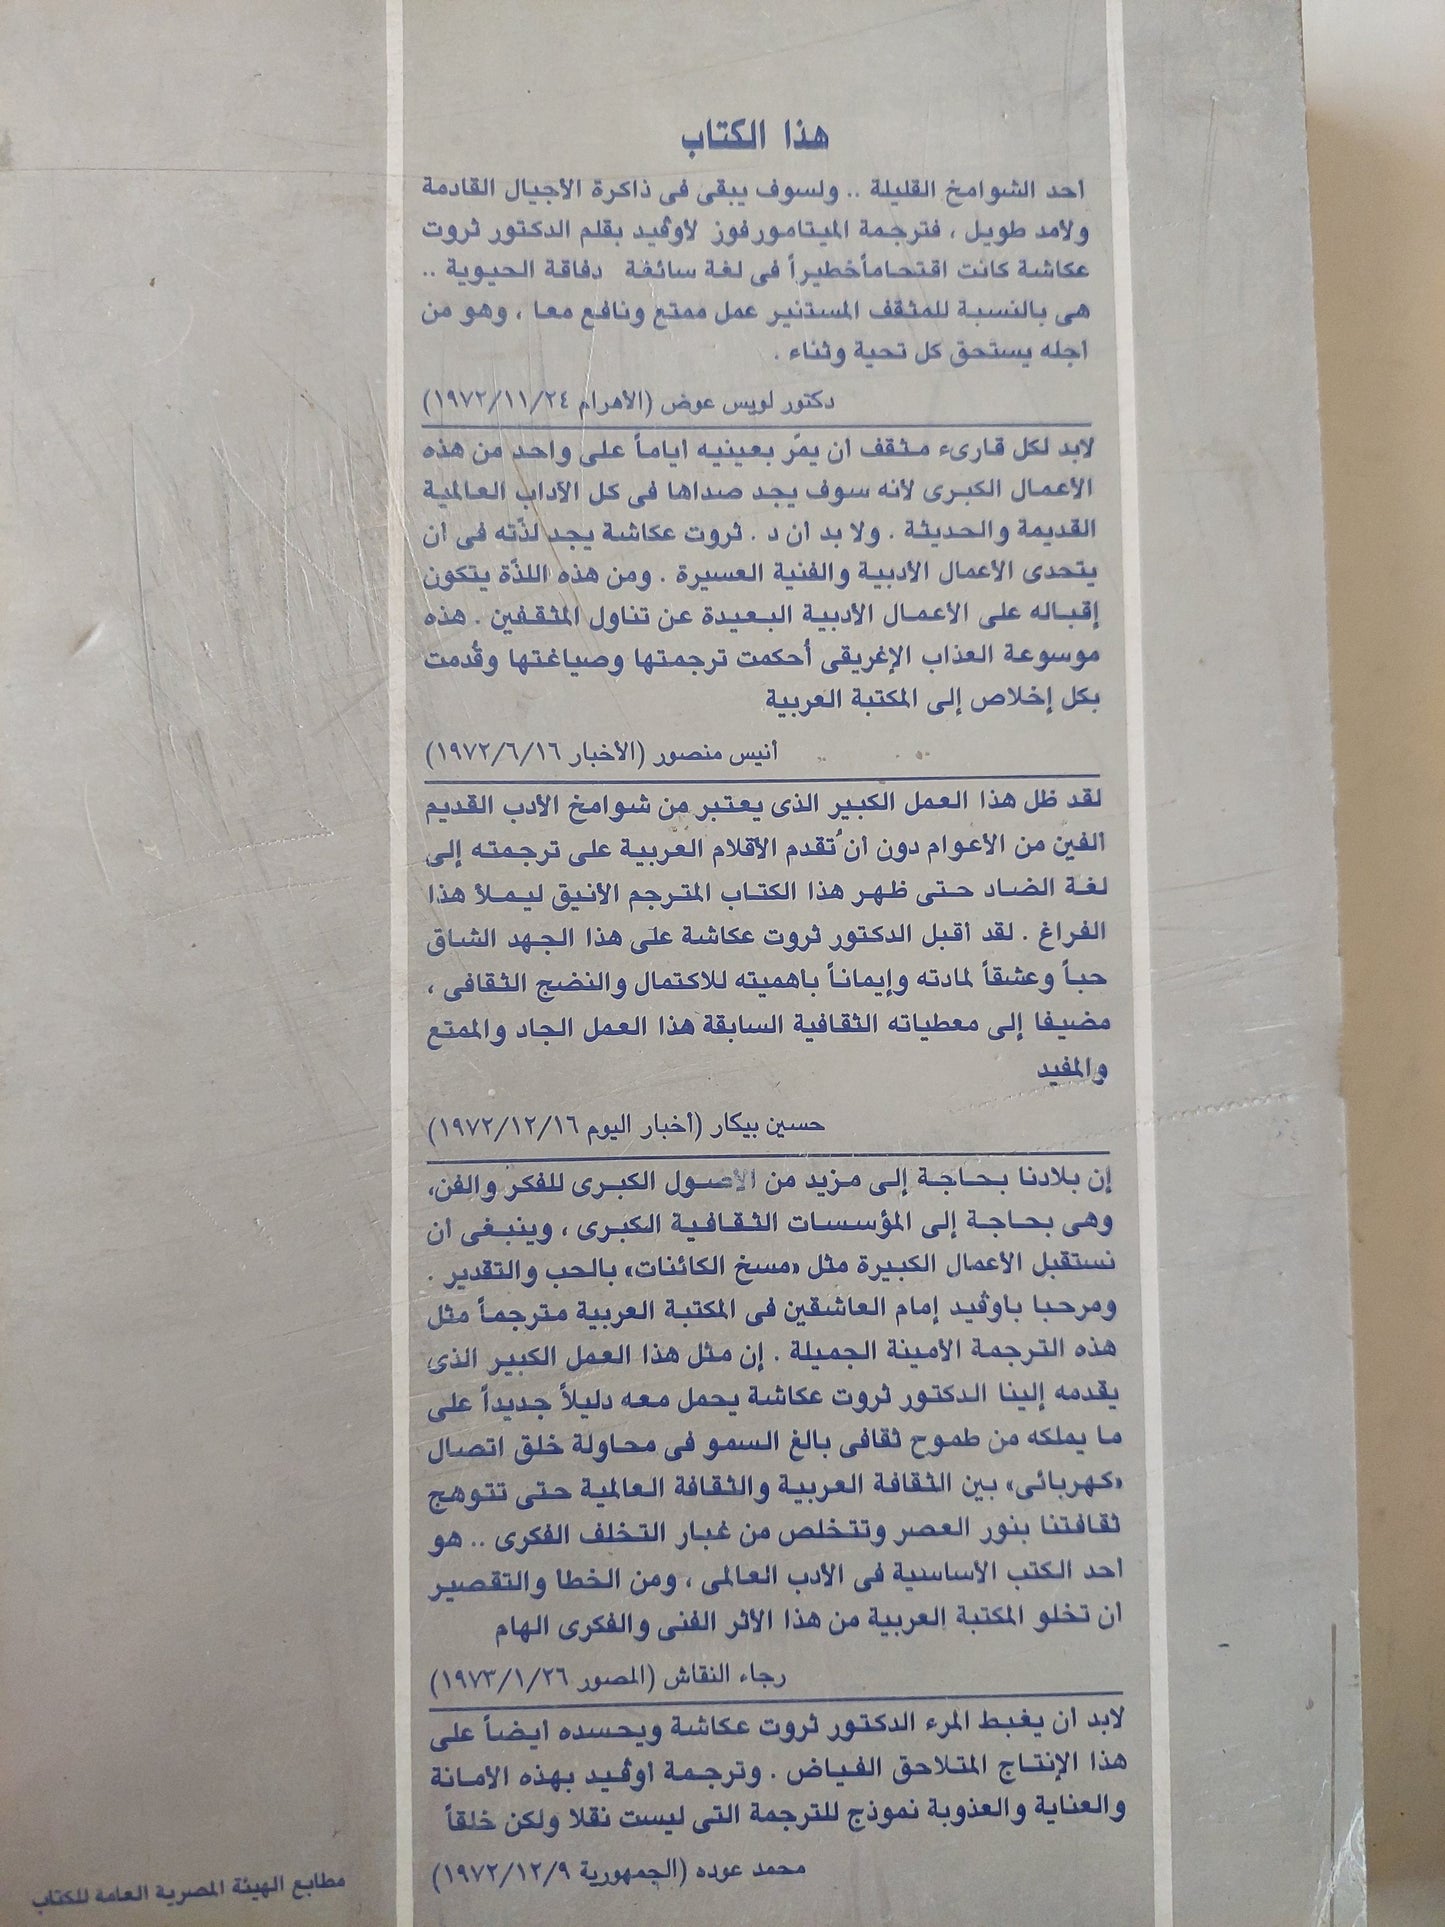 هذا الكتاب
أحد الشوامخ القليلة .. ولسوف يبقى فى ذاكرة الأجيال القادمة
ولأمد طويل ، فترجمة الميتامورفوز لأوڤيد بقلم الدكتور ثروت
عكاشة كانت اقتحاماً خطيراً فى لغة سائغة دفاقة الحيوية ..
هى بالنسبة للمثقف المستنير عمل ممتع ونافع معا ، وهو من
أجله يستحق كل تحية وثناء .
دكتور لويس عوض (الأهرام ١٩٧٢/١١/٢٤)
لابد لكل قارىء مثقف أن يمّر بعينيه أياماً على واحد من هذه
الأعمال الكبرى لأنه سوف يجد صداها فى كل الآداب العالمية
القديمة والحديثة . ولا بد أن د . ثروت عكاشة يجد لذّته فى أن
يتحدى الأعمال الأدبية والفنية العسيرة . ومن هذه اللذّة يتكون
إقباله على الأعمال الأدبية البعيدة عن تناول المثقفين . هذه
موسوعة العذاب الإغريقى أُحكمت ترجمتها وصياغتها وقُدمت
بكل إخلاص إلى المكتبة العربية
أنيس منصور (الأخبار ١٩٧٢/٦/١٦)
لقد ظل هذا العمل الكبير الذى يعتبر من شوامخ الأدب القديم
ألفين من الأعوام دون أن تُقدم الأقلام العربية على ترجمته إلى
لغة الضاد حتى ظهر هذا الكتاب المترجم الأنيق ليملأ هذا
الفراغ . لقد أقبل الدكتور ثروت عكاشة على هذا الجهد الشاق
حباً وعشقاً لمادته وإيماناً بأهميته للاكتمال والنضج الثقافى ،
مضيفا إلى معطياته الثقافية السابقة هذا العمل الجاد والممتع
والمفيد
حسين بيكار (أخبار اليوم ١٩٧٢/١٢/١٦)
إن بلادنا بحاجة إلى مزيد من الأصول الكبرى للفكر والفن،
وهى بحاجة إلى المؤسسات الثقافية الكبرى ، وينبغى أن
نستقبل الأعمال الكبيرة مثل «مسخ الكائنات» بالحب والتقدير .
ومرحبا بأوڤيد إمام العاشقين فى المكتبة العربية مترجماً مثل
هذه الترجمة الأمينة الجميلة . إن مثل هذا العمل الكبير الذى
يقدمه إلينا الدكتور ثروت عكاشة يحمل معه دليلاً جديداً على
ما يملكه من طموح ثقافى بالغ السمو فى محاولة خلق اتصال
«كهربائى» بين الثقافة العربية والثقافة العالمية حتى تتوهج
ثقافتنا بنور العصر وتتخلص من غبار التخلف الفكرى .. هو
أحد الكتب الأساسية فى الأدب العالمى ، ومن الخطا والتقصير
أن تخلو المكتبة العربية من هذا الأثر الفنى والفكرى الهام
رجاء النقاش (المصور ١٩٧٣/١/٢٦)
لابد أن يغبط المرء الدكتور ثروت عكاشة ويحسده أيضاً على
هذا الإنتاج المتلاحق الفياض . وترجمة أوڤيد بهذه الأمانة
والعناية والعذوبة نموذج للترجمة التى ليست نقلا ولكن خلقاً
محمد عوده (الجمهورية ١٩٧٢/١٢/٩)
مطابع الهيئة المصرية العامة للكتاب